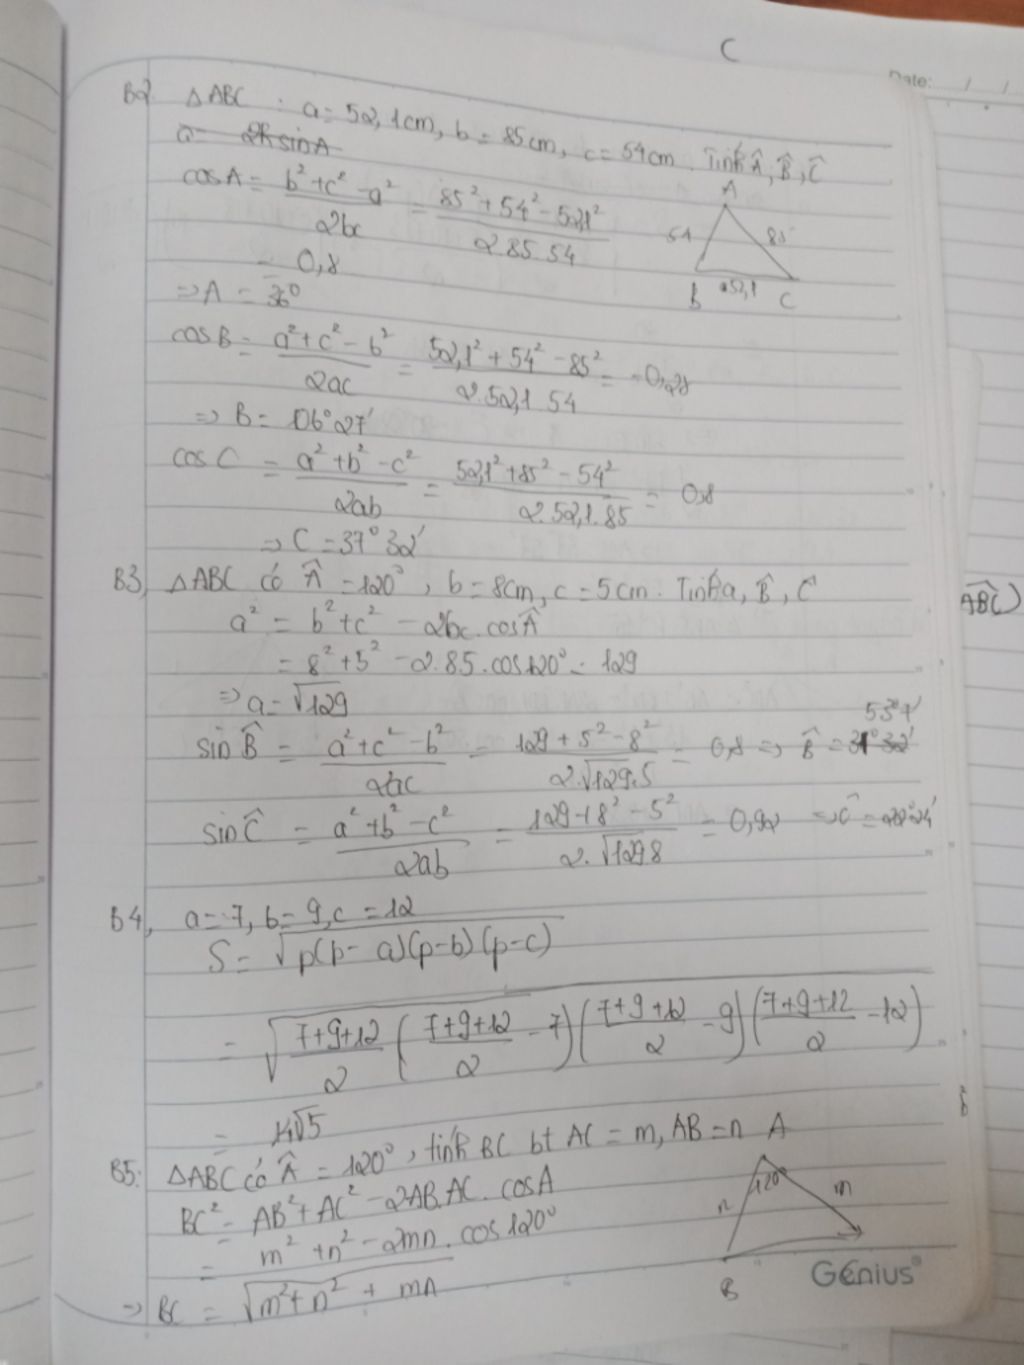 C
Date: / /
B2 ΔABC : a = 52,1cm, b = 85cm, c = 54cm. Tính Â, B̂, Ĉ
a = 2R sinA
cosA = (b² + c² - a²)/(2bc) = (85² + 54² - 52,1²)/(2.85.54)
= 0,8
⇒ A = 36°
A
54 85
B a52,1 C
cosB = (a² + c² - b²)/(2ac) = (52,1² + 54² - 85²)/(2.52,1.54) = -0,28
⇒ B = 106°27'
cosC = (a² + b² - c²)/(2ab) = (52,1² + 85² - 54²)/(2.52,1.85) = 0,8
⇒ C = 37°32'
B3, ΔABC có Â = 120°, b = 8cm, c = 5cm. Tính a, B̂, Ĉ
ABC)
a² = b² + c² - 2bc.cosÂ
= 8² + 5² - 2.85.cos120° = 129
⇒ a = √129
53°7'
sin B̂ = (a² + c² - b²)/(2ac) = (129 + 5² - 8²)/(2.√129.5) = 0,8 ⇒ B̂ =
sin Ĉ = (a² + b² - c²)/(2ab) = (129 + 8² - 5²)/(2.√129 8) = 0,92 ⇒ Ĉ =
B4, a = 7, b = 9, c = 12
S = √(p(p - a)(p-b)(p-c))
= √((7+9+12)/2 ((7+9+12)/2 - 7)((7+9+12)/2 - 9)((7+9+12)/2 - 12))
= 14√5
B5: ΔABC có Â = 120°, tính BC bt AC = m, AB = n
A
120°
n m
B
BC² = AB² + AC² - 2AB.AC.cosA
= m² + n² - 2mn.cos120°
⇒ BC = √(m² + n² + mn)
Genius